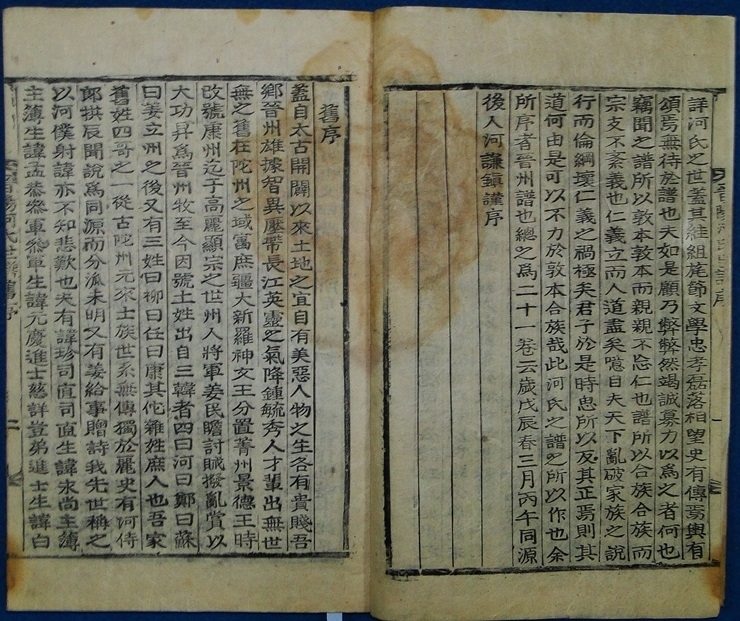 詳河氏之世盖其絓組旄節文學忠孝磊落相望史有傳焉輿有
頌焉無待於譜也夫如是顧乃弊弊然竭誠募力以爲之者何也
竊聞之譜所以敦本敦本而親親不忘仁也譜所以合族合族而
宗支不紊義也仁義立而人道盡矣噫自夫天下亂破家族之說
行而倫綱壞仁義之禍極矣君子於是時思所以反其正焉則其
道何由是可以不力於敦本合族哉此河氏之譜之所以作也余
所序者晉州譜也總之爲二十一卷云歲戊辰春三月丙午同源
後人河謙鎭謹序
舊序
盖自太古開闢以來土地之宜自有美惡人物之生各有貴賤吾
鄕晉州雄據智異壓帶長江英靈之氣降鍾毓秀人才軰出無世
無之舊在陀州之域富庶疆大新羅神文王分置菁州景德王時
改號康州迄于高麗顯宗之世州人將軍姜民瞻討賊撥亂賞以
大功昇爲晉州牧至今因號土姓出自三韓者四曰河曰鄭曰蘇
曰姜立州之後又有三姓曰柳曰任曰康其佗雜姓庶人也吾家
舊姓四哥之一從古陀州元來士族世系無傳獨於麗史有河侍
郎拱辰聞說爲同源而分派未明又有姜給事贈詩我先世稱之
以河僕射諱亦不知悲歎也夫有諱珍司直司直生諱永尚主簿
主薄生諱孟恭叅軍叅軍生諱元慶進士慈詳豈弟進士生諱白